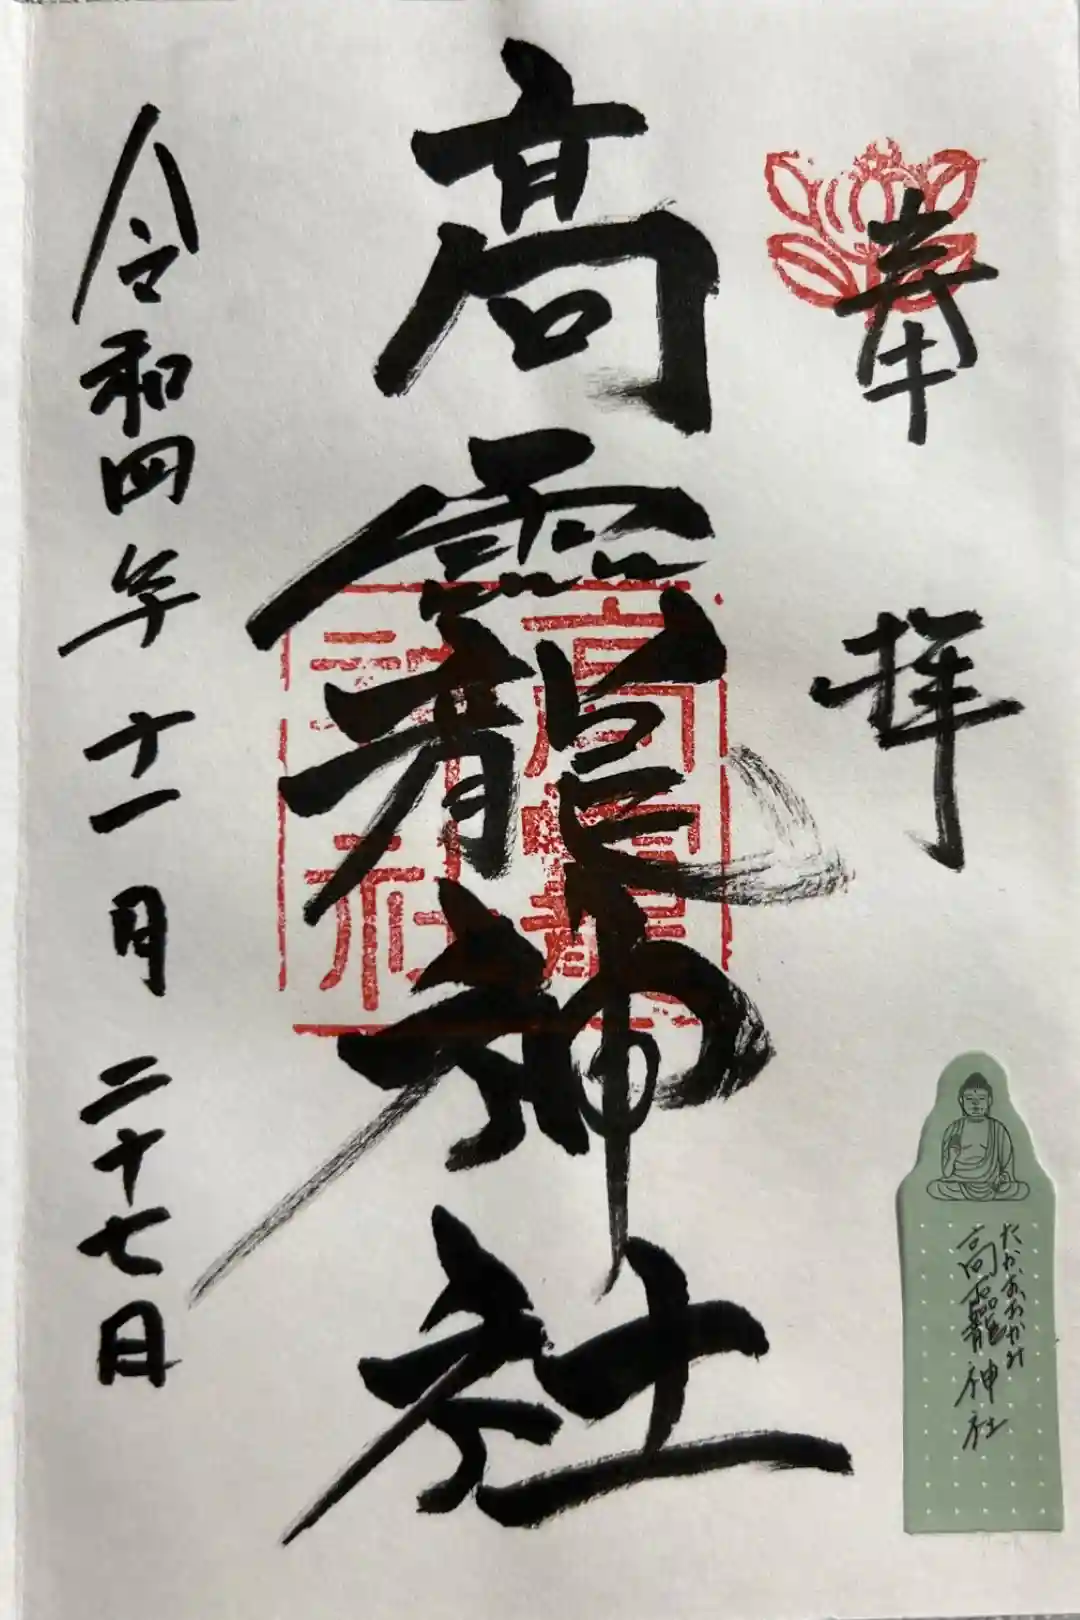 奉拝
高龗神社
高龗
神社
令和四年十一月二十七日
たかおおかみ
高龗神社